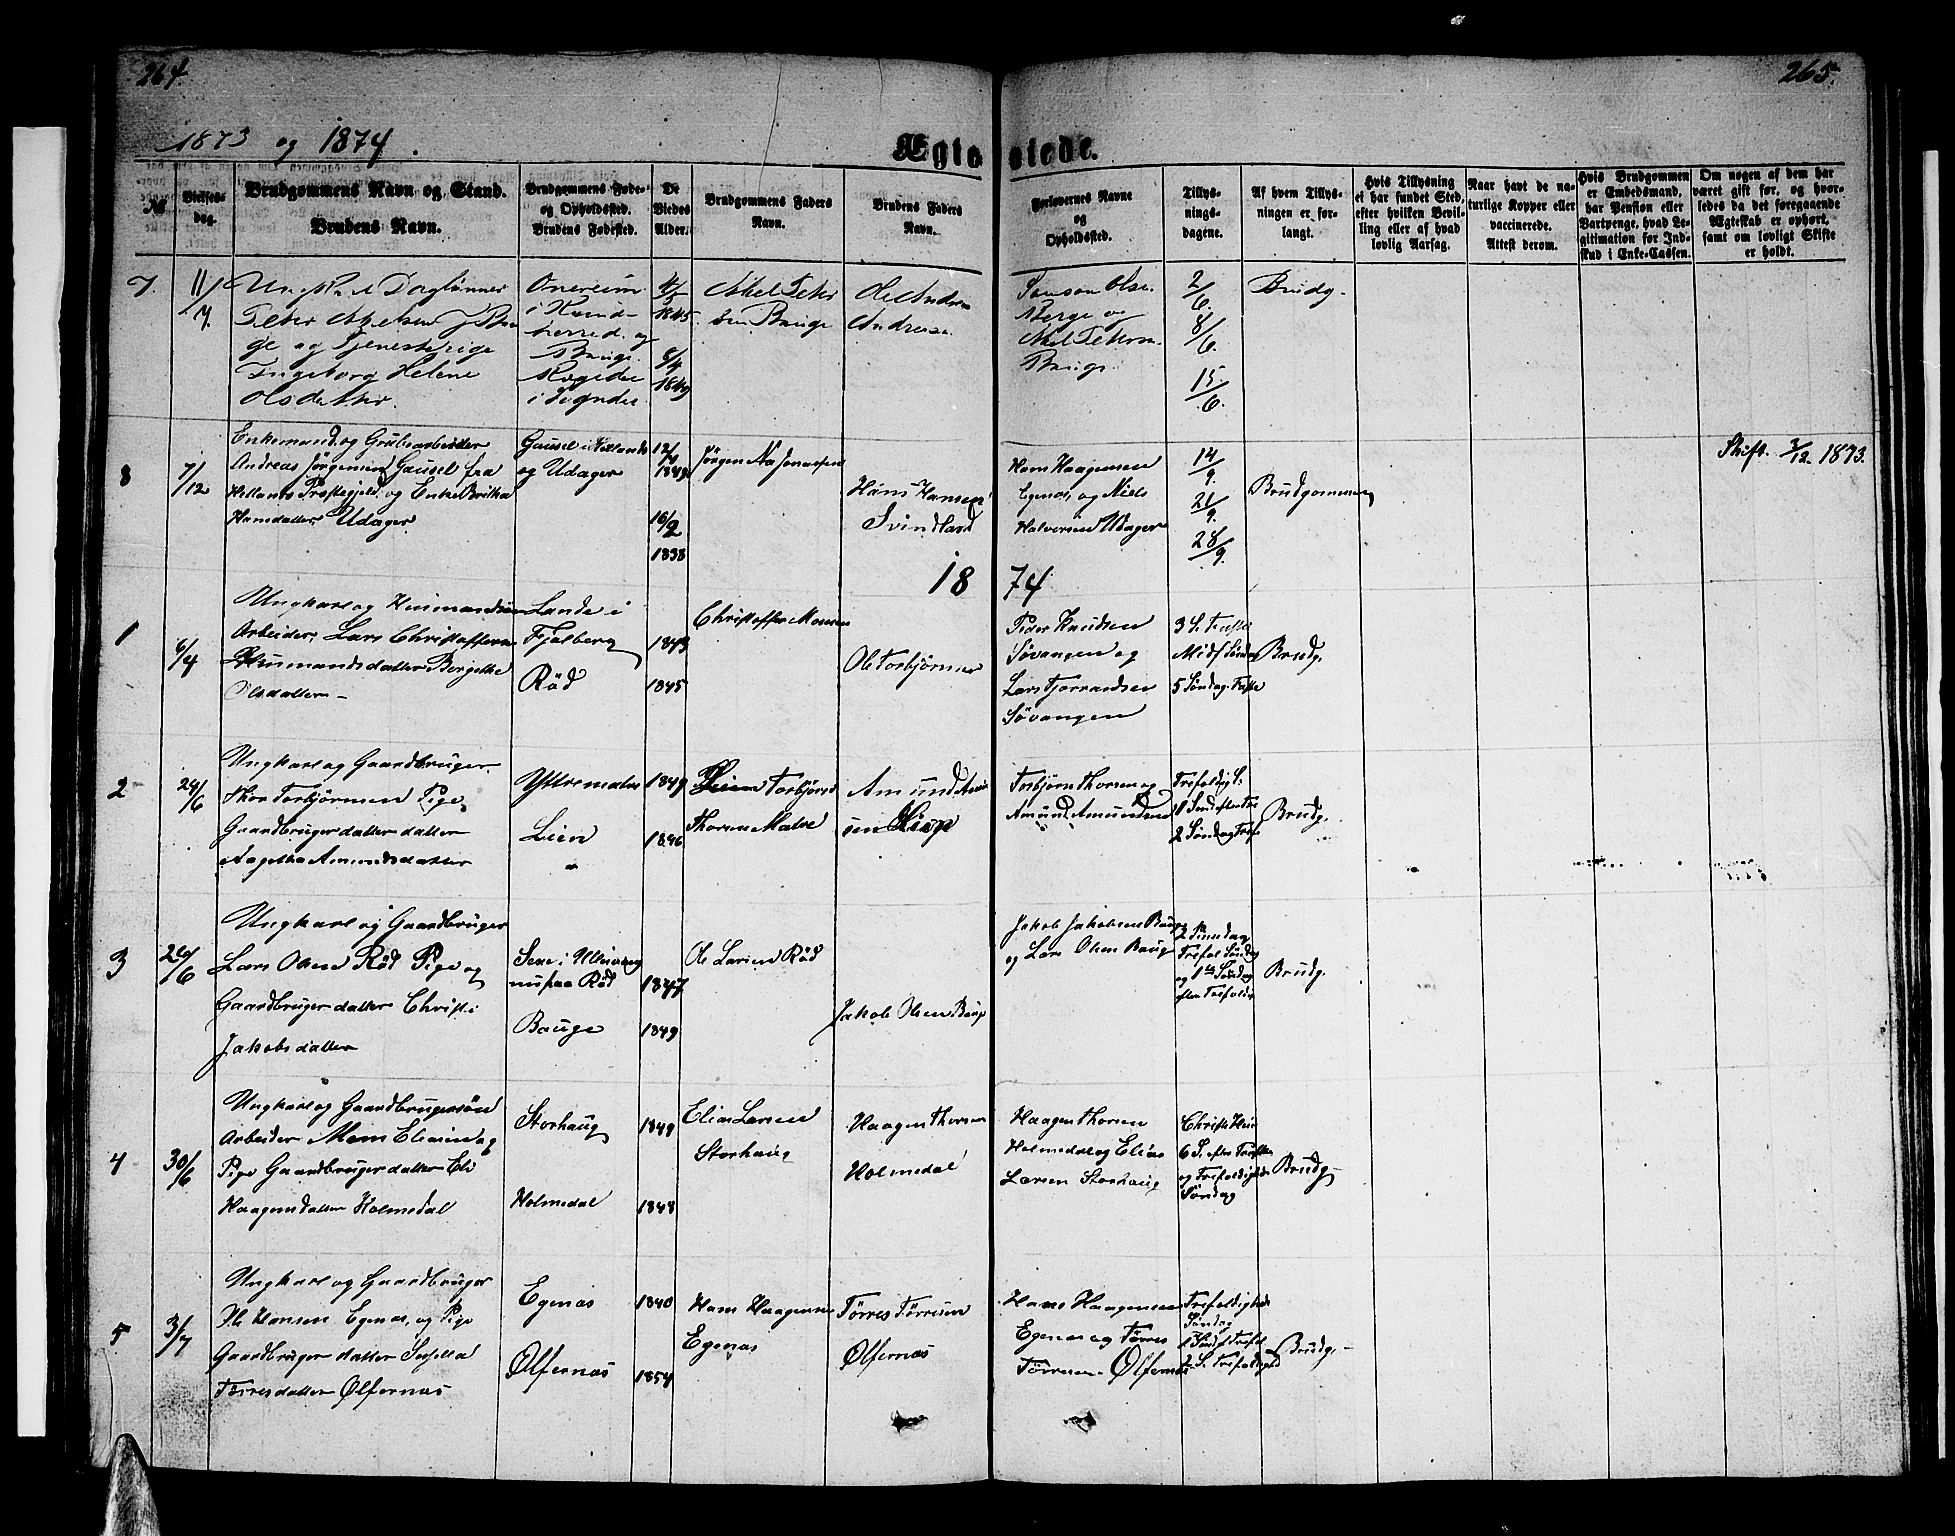 264.
265.
1873 og 1874.
Ægteviede.
№
Vielses-
dag.
Brudgommens Navn og Stand.
Brudens Navn.
Brudgommens Føde-
og Opholdssted.
Brudens Fødested.
De
Viedes
Alder.
Brudgommens Faders
Navn.
Brudens Faders
Navn.
Forlovernes Navne
og
Opholdssted.
Tillys-
nings-
dagene.
Af hvem Tillys-
ningen er for-
langt.
Hvis Tillysning
ei har fundet Sted,
efter hvilken Bevil-
ling eller af hvad
lovlig Aarsag.
Naar havt de na-
turlige Kopper eller
vaccinerede.
Attest derom.
Hvis Brudgommen
er Embedsmand,
har Pension eller
Vartpenge, hvad Le-
gitimation for Ind-
skud i Enke-Cassen.
Om nogen af dem har
været gift før, og hvor-
ledes da det foregaaende
Ægteskab er ophørt,
samt om lovligt Skifte
er holdt.
7. 11/7.
Ungkarl Daglønner
Peter Akelsen
ge og Tjenestepige
Ingeborg Helene
Olsdatter.
i Kvind-
herred og
Bauge.
4/5 1845
8/4 1849
Akel Peter
sen Bauge
Ole Andrea
Andrease
Samson Olsen
Berge og
Akel Petersen
Bauge.
2/6.
8/6.
15/6.
Brudg.
8
7/12
Enkemand og Grubearbeider
Andreas Jørgensen Gausel fra
Hetlands Præstegjeld og Enke Britha
Hansdatter Udager
Gausel i Hetlands
og Udager
12/4 1849
16/2 1838
Jørgen Aa Jonassen
Hans Hansen
Svindland
Hans Haagensen
Egenæs, og Niels
Halvorsen Udager
14/9.
21/9.
28/9.
Brudgommen
Skift. 3/12 1873.
1874
1
6/4
Ungkarl og Husmandssøn
Arbeider Lars Christoffersen
Husmandsdatter Bergitha
Olsdatter –
Lande i
Fjelberg
Röd
1843
1845
Christoffer Monsen
Ole Torbjørnsen
Peder Knudsen
Søvangen og
Lars Tjerrandsen
Søvangen
3 S. Faste
Midf Søndag
5 Søndag Faste
Brudg.
2
24/6
Ungkarl og Gaardbruger
Thor Torbjørnsen Pige
Gaardbruger datter datter
Aagetha Amundsdatter
Yttremalen
Lien
1849
1846
Torbjørn
Thorsen Malve
Amund Amund
sen Lien
Torbjørn Thorsen og
Amund Amundsen
Trefoldig S.
1 Sønd efter Tre
2 Søndag Tref
Brudg.
3
24/6
Ungkarl og Gaardbruger
Lars Olsen Röd Pige og
Gaardbruger datter Christi
Jakobsdatter
Sexe i Ullensvang
nu paa Röd
Bauge
1847
1849
Ole Larsen Röd
Jakob Olsen Bauge
Jakob Jakobsen Bauge
og Lars Olsen Bauge
2 Pinsedag
Trefol Søndag
og 1ste Søndag
efter Trefoldi
Brudg.
4
30/6
Ungkarl og Gaardbrugersøn
Arbeider Mons Eliasen og
Pige Gaardbruger datter Eli
Haagensdatter Holmedal
Storhaug
Holmedal
1849
1848
Elias Larsen
Storhaug
Haagen Thorsen
Holmedal
Haagen Thorsen
Holmedal og Elias
Larsen Storhaug
Christi Him
6 S. efter Paaske
og Trefoldigheds
Søndag
Brudg.
5
3/7
Ungkarl og Gaardbruger
Ole Hansen Egenæs, og Pige
Gaardbruger datter Serella
Tørresdatter Ølfernæs
Egenæs
Ølfernæs
1840
1854
Hans Haagensen
Egenæs
Tørres Tørresen
Ølfernæs
Hans Haagensen
Egenæs og Tørres
Tørresen Ølfernæs
Trefoldigheds
Søndag
1 Sønd Trefol
2 S. Trefoldighed
Brudg. –